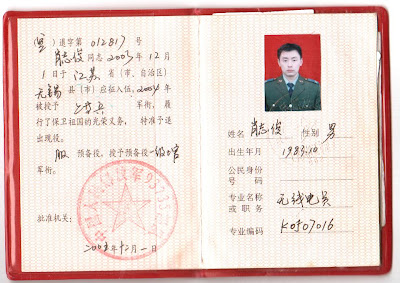 退字第 012817 号
肖志俊 同志 2003 年 12 月
1 日于 江苏 省(市、自治区)
无锡 县(市)应征入伍, 2004 年
被授予 上等兵 军衔,履
行了保卫祖国的光荣义务,特准予退
出现役。
服 预备役,授予预备役 一级士官
军衔。
批准机关:
2005年12月1日
姓名 肖志俊 性别 男
出生年月 1983.10
公民身份
号码
专业名称
或职务 无线电员
专业编码 K0507016